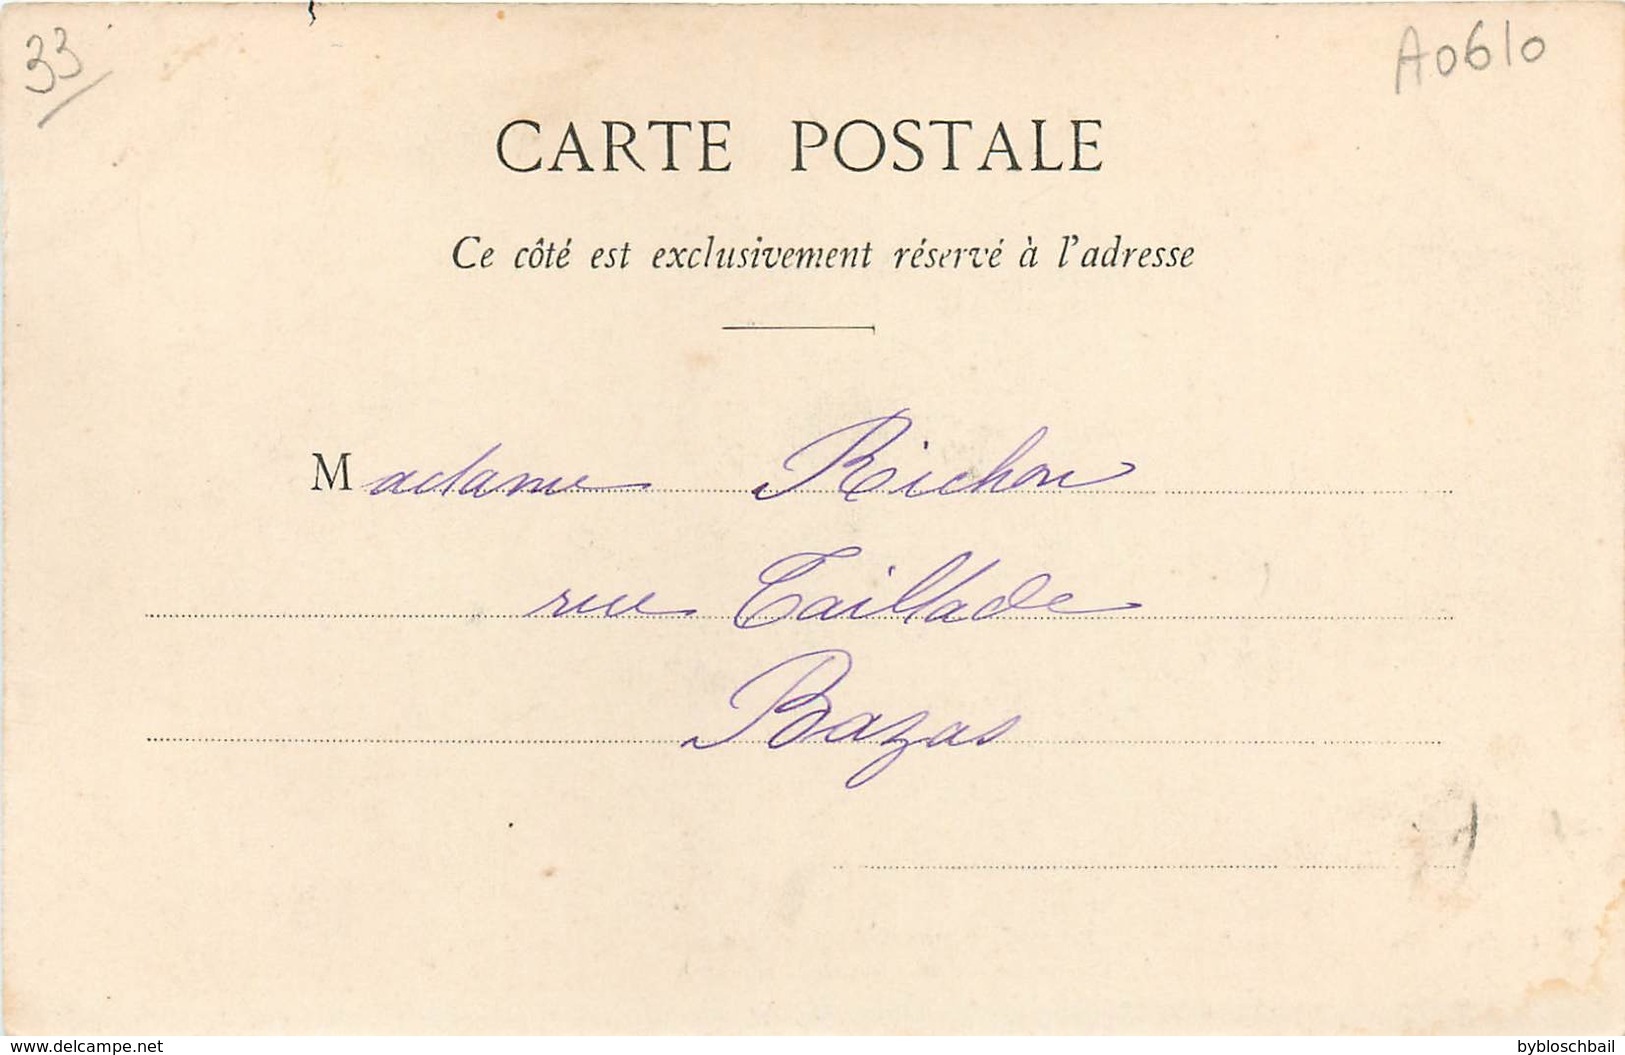 33
A0610
CARTE POSTALE
Ce côté est exclusivement réservé à l'adresse
Madame Richon
rue Taillade
Bazas
www.delcampe.net
bybloschbail